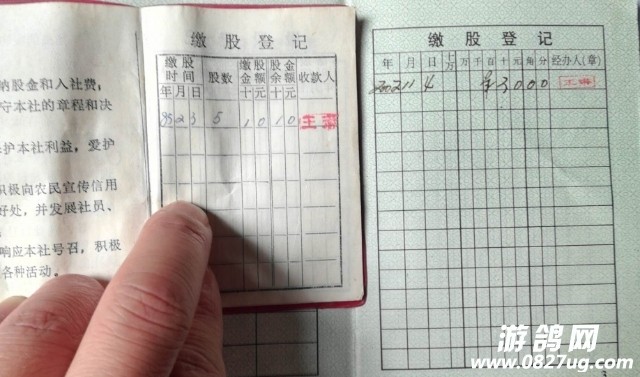 纳股金和入社费；
守本社的章程和决
护本社利益，爱护
积极向农民宣传信用
好处，并发展社员、
响应本社号召，积极
各种活动。
缴股登记
缴股时间 股数 缴股金额 股金余额 收款人
年 月 日 十 元 十 元
95 2 3 5 1 0 1 0
缴股登记
年 月 日 十万 万 千 百 十 元 角 分 经办人(章)
2002 11 4 3 0 0 0
游鸽网
www.0827ug.com